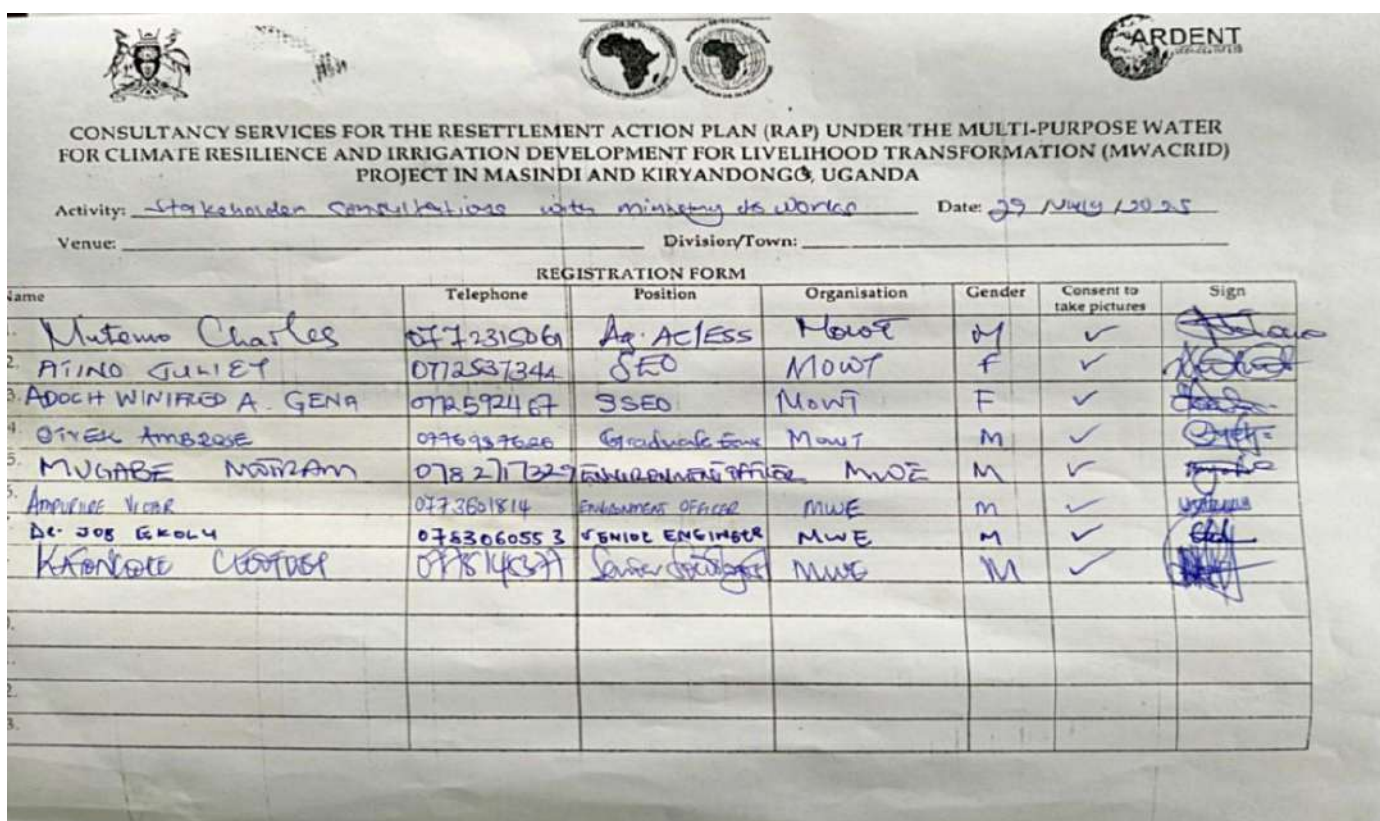 ARDENT
CONSULTANCY SERVICES FOR THE RESETTLEMENT ACTION PLAN (RAP) UNDER THE MULTI-PURPOSE WATER
FOR CLIMATE RESILIENCE AND IRRIGATION DEVELOPMENT FOR LIVELIHOOD TRANSFORMATION (MWACRID)
PROJECT IN MASINDI AND KIRYANDONGO, UGANDA
Activity: Stakeholder consultations with ministry of works Date: 29 /July /2025
Venue: Division/Town:
REGISTRATION FORM
Name Telephone Position Organisation Gender Consent to take pictures Sign
Mutemo Charles 0772315061 Ag. AC/ESS MoWT M ✓
2. ATINO JULIET 0772537344 SEO MOWT F ✓
3. ADOCH WINIFRED A. GENA 0772592467 SSEO MoWT F ✓
4. AMBROSE Graduate MoWT M ✓
5. MUGABE 0782717329 ENVIRONMENT OFFICER MWOE M ✓
0773601814 ENVIRONMENT OFFICER MWE M ✓
Dr. JOB EKOLU 0783060553 SENIOR ENGINEER MWE M ✓
Senior MWE M ✓
2.
3.